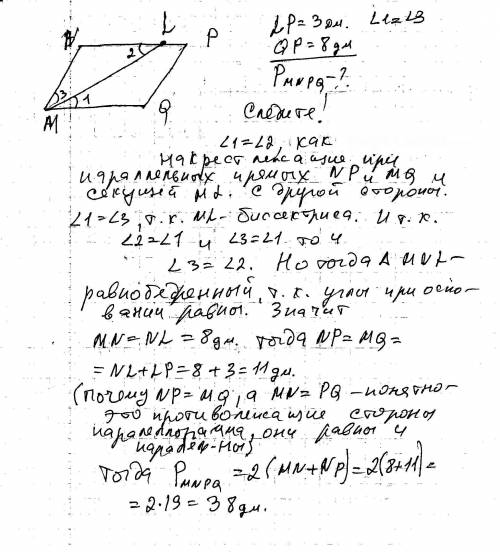 N L P
2
3 1
M Q
LP = 3дм. ∠1=∠3
QP = 8дм
P MNPQ - ?
Следите!
∠1=∠2, как
накрест лежащие при
параллельных прямых NP и MQ и
секущей ML. С другой стороны.
∠1=∠3, т.к. ML - биссектриса. И т.к.
∠2=∠1 и ∠3=∠1 то и
∠3=∠2. Но тогда Δ MNL -
равнобедренный, т.к. углы при осно-
вании равны. Значит
MN = NL = 8дм. тогда NP = MQ =
= NL + LP = 8 + 3 = 11 дм.
(почему NP = MQ, а MN = PQ - понятно -
это противолежащие стороны
параллелограмма, они равны и
паралл-ны)
Тогда P MNPQ = 2(MN + NP) = 2(8+11) =
= 2·19 = 38дм.